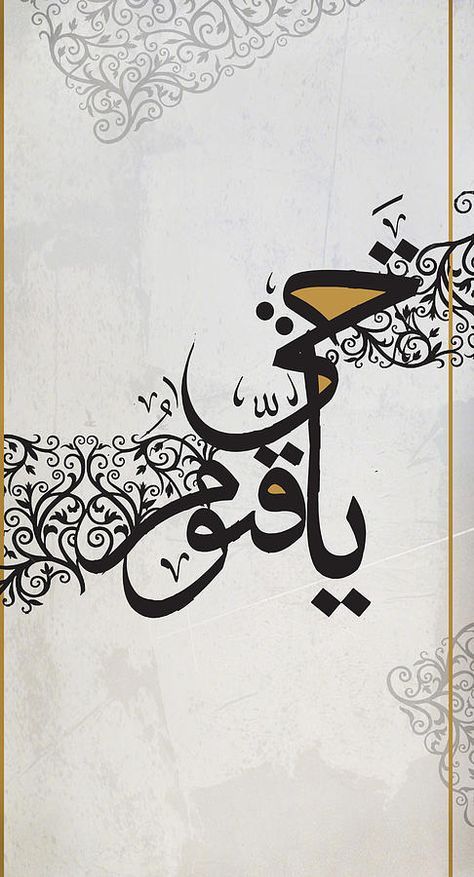 يا حيّ قيّومُ